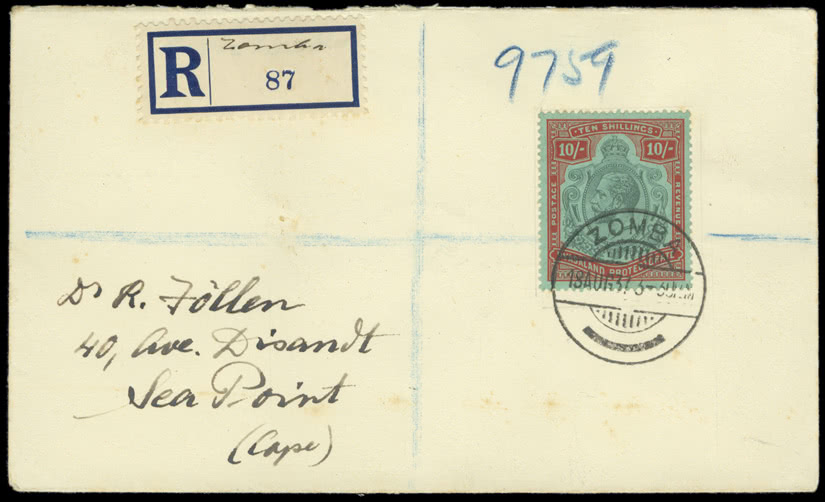 R Zomba
87
9759
TEN SHILLINGS
10/- 10/-
POSTAGE REVENUE
PROTECTORATE
ZOMB
18 AUG 37 3-30PM
Dr R. Föllen
40, Ave. Disandt
Sea Point
(Cape)